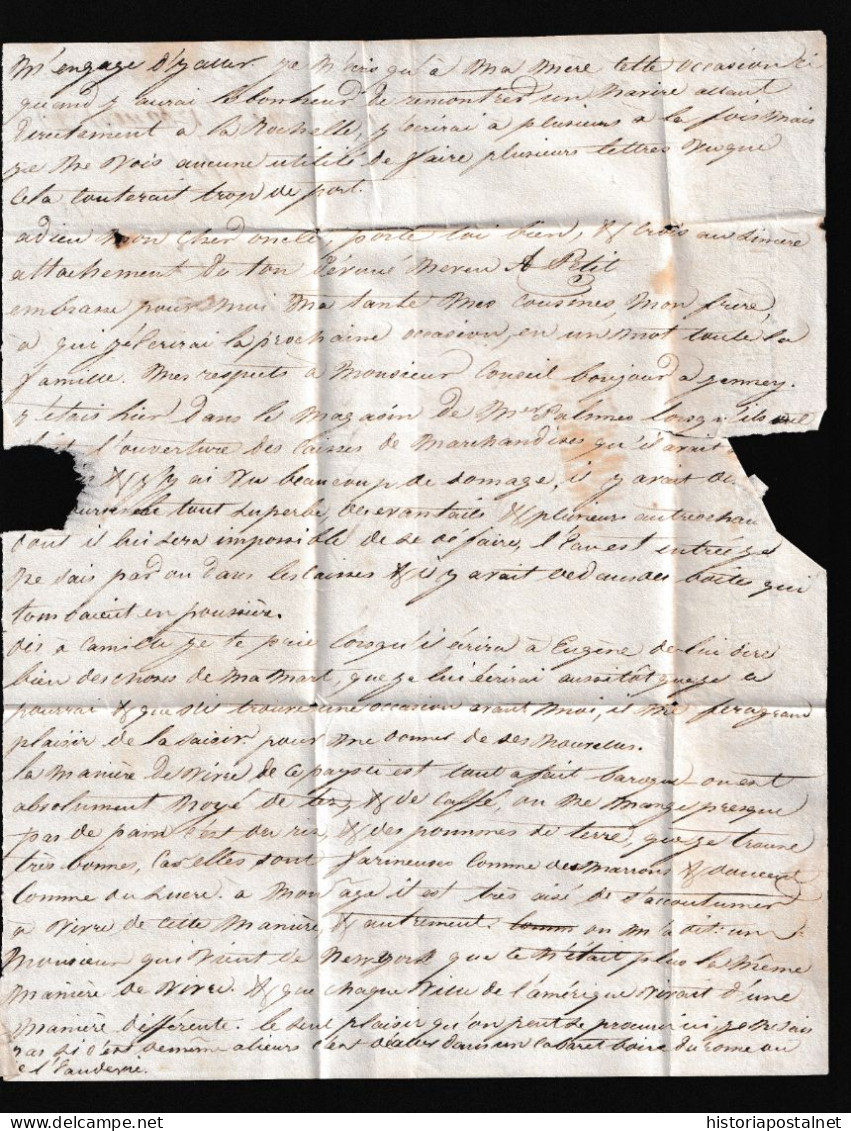 M'engage d'y aller. je n'écris qu'à Ma Mère cette occasion ci
quand j'aurai le bonheur de remontrer un Navire allant
directement à la Rochelle, j'écrirai à plusieurs à la fois Mais
je ne vois aucune utilité de faire plusieurs lettres vu que
cela couterait trop de port.
adieu Mon cher oncle, porte toi bien, & crois au sincère
attachement de ton dévoué Neveu A Petit
embrasse pour Moi Ma tante Mes cousines, Mon frère,
à qui j'écrirai la prochaine occasion, en un Mot toute la
famille. Mes respects à Monsieur Conseil bonjour à jenney.
j'étais hier dans le Magasin de Mr Palmes lorsqu'ils
l'ouverture des caisses de Marchandises qu'il avait
& j'y ai vu beaucoup de domage, il y avait de
le tout superbe des evantails & plusieurs autres
dont il lui sera impossible de se défaire, l'eau est entrée je
ne sais par où dans les caisses & il y avait dedans des boites qui
tombaient en poussière.
dis à Camille je te prie lorsqu'il écrira à Eugène de lui dire
bien des choses de Ma Part, que je lui écrirai aussitôt que je le
pourrai & que s'il trouve une occasion avant Moi, il Me fera grand
plaisir de la saisir pour Me donner de ses Nouvelles.
la Manière de vivre de ce pays ci est tout a fait baroque on est
absolument Noyé de thé & de caffé, on Ne Mange presque
pas de pain c'est du riz, & des pommes de terre, que je trouve
très bonnes, car elles sont farineuses comme des Marrons & douces
comme du sucre. à Mon âge il est très aisé de s'accoutumer
à vivre de cette Manière, & autrement. on M'a dit un
Monsieur qui vient de New york que ce N'était plus la Même
Manière de vivre. & que chaque ville de l'amérique vivait d'une
Manière différente. le seul plaisir qu'on peut se procurer ici je Ne sais
pas si c'est de même ailleurs c'est d'aller dans un cabaret boire du rome ou
de l'eau de vie.
historiapostalnet